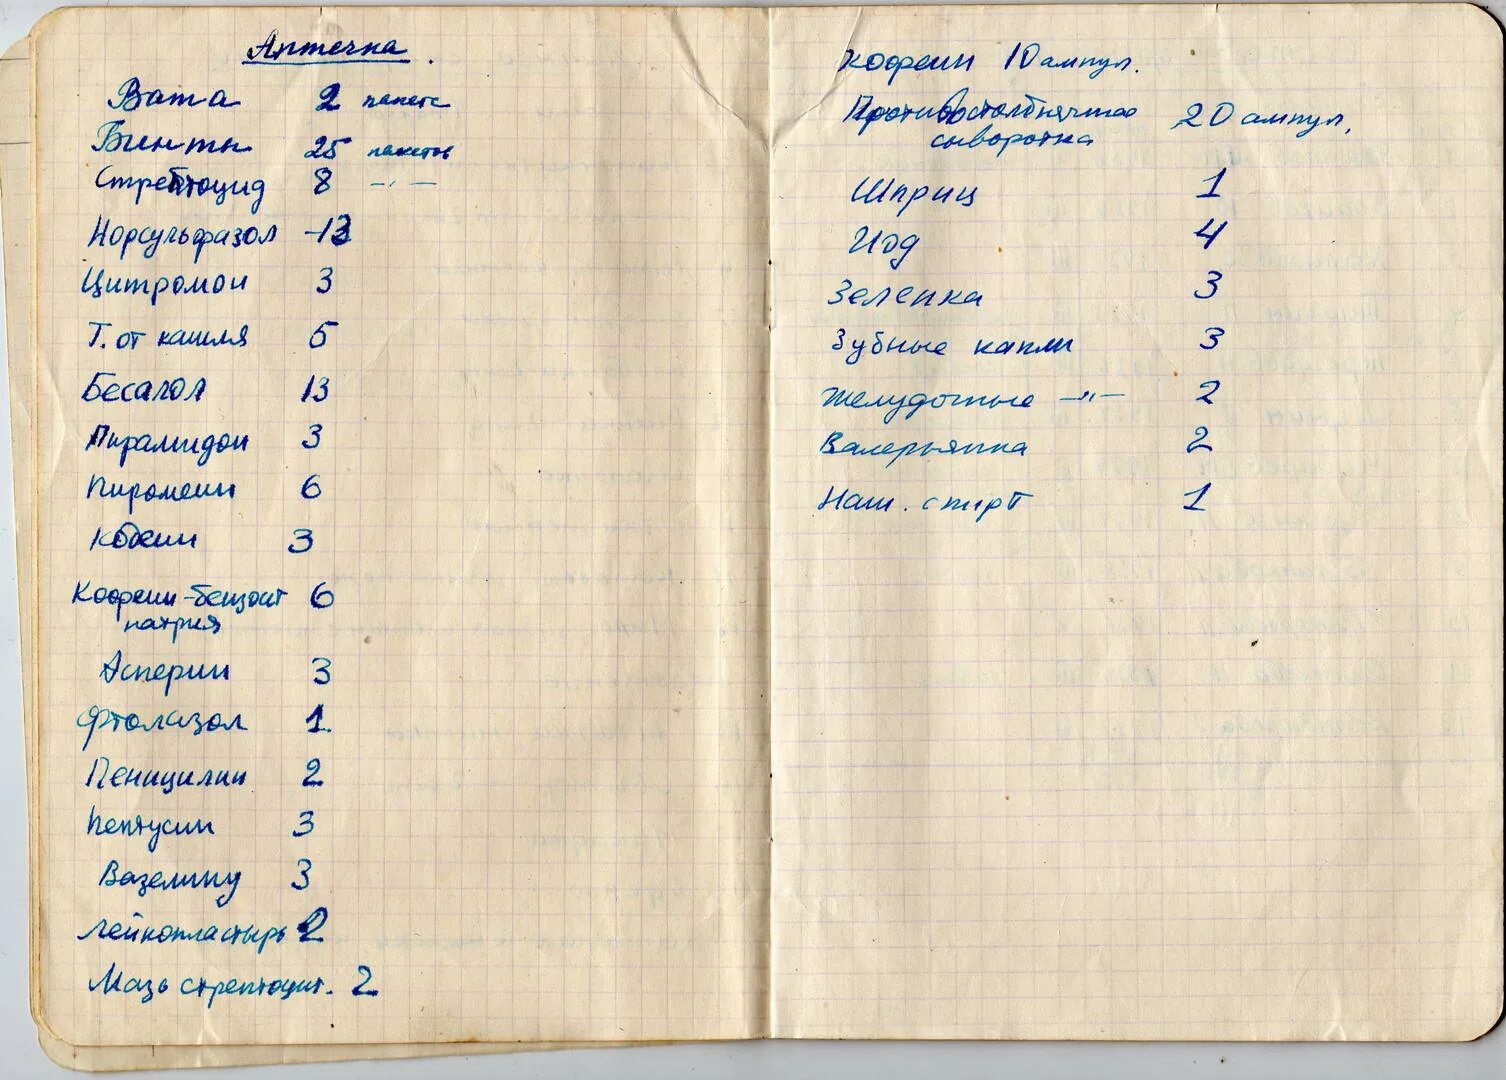 Аптечка.
Вата 2 пакета
Бинты 25 пакетов
Стрептоцид 8 —"—
Норсульфазол -13
Цитромон 3
Т. от кашля 5
Бесалол 13
Пирамидон 3
Пиромеин 6
Кодеин 3
Кофеин-бензоат 6
натрия
Асперин 3
Фтолазол 1
Пеницилин 2
Пептусин 3
Вазелину 3
Лейкопластырь 2
Мазь стрептоцит. 2
Кофеин 10 ампул.
Противостолбнячная 20 ампул.
сыворотка
Шприц 1
Йод 4
Зеленка 3
Зубные капли 3
Желудочные —"— 2
Валерьянка 2
Наш. спирт 1